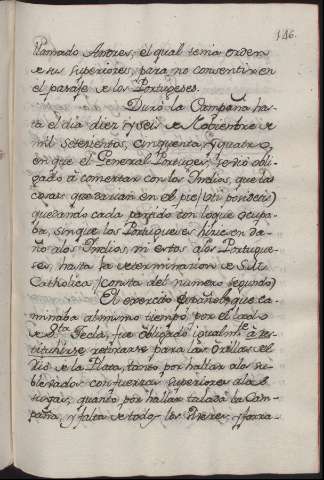 146.
llamado Andres, el qual tenia orden
de sus Superiores, para no consentir en
el pasaje de los Portugeses.
Duró la Campaña has-
ta el dia diez, y seis de Nobiembre de
mil setecientos, cinquenta, y quatro,
en que el General Portuges, se vió obli-
gado á comerтar con los Indios, que las
cosas quedarian en el pie (Uti posideti)
quedando cada partido con loque ocupa-
ba, sin que los Portugueses hisiesen da-
ño alos Indios, ni estos alos Portugue-
ses, hasta la determinacion de
Catholica, (consta del numero segundo)
El exercito Español, que ca-
minaba al mismo tiempo, por el lado
de Sta. Tecla, fue obligado igualmte. á
retirarse para las Orillas del
Rio de la Plata, tanto por hallar alos su-
blevados con fuerzas superiores alas
suyas, quanto por hallar talada la Cam-
paña, y falta de todos los Viveres, y forra-